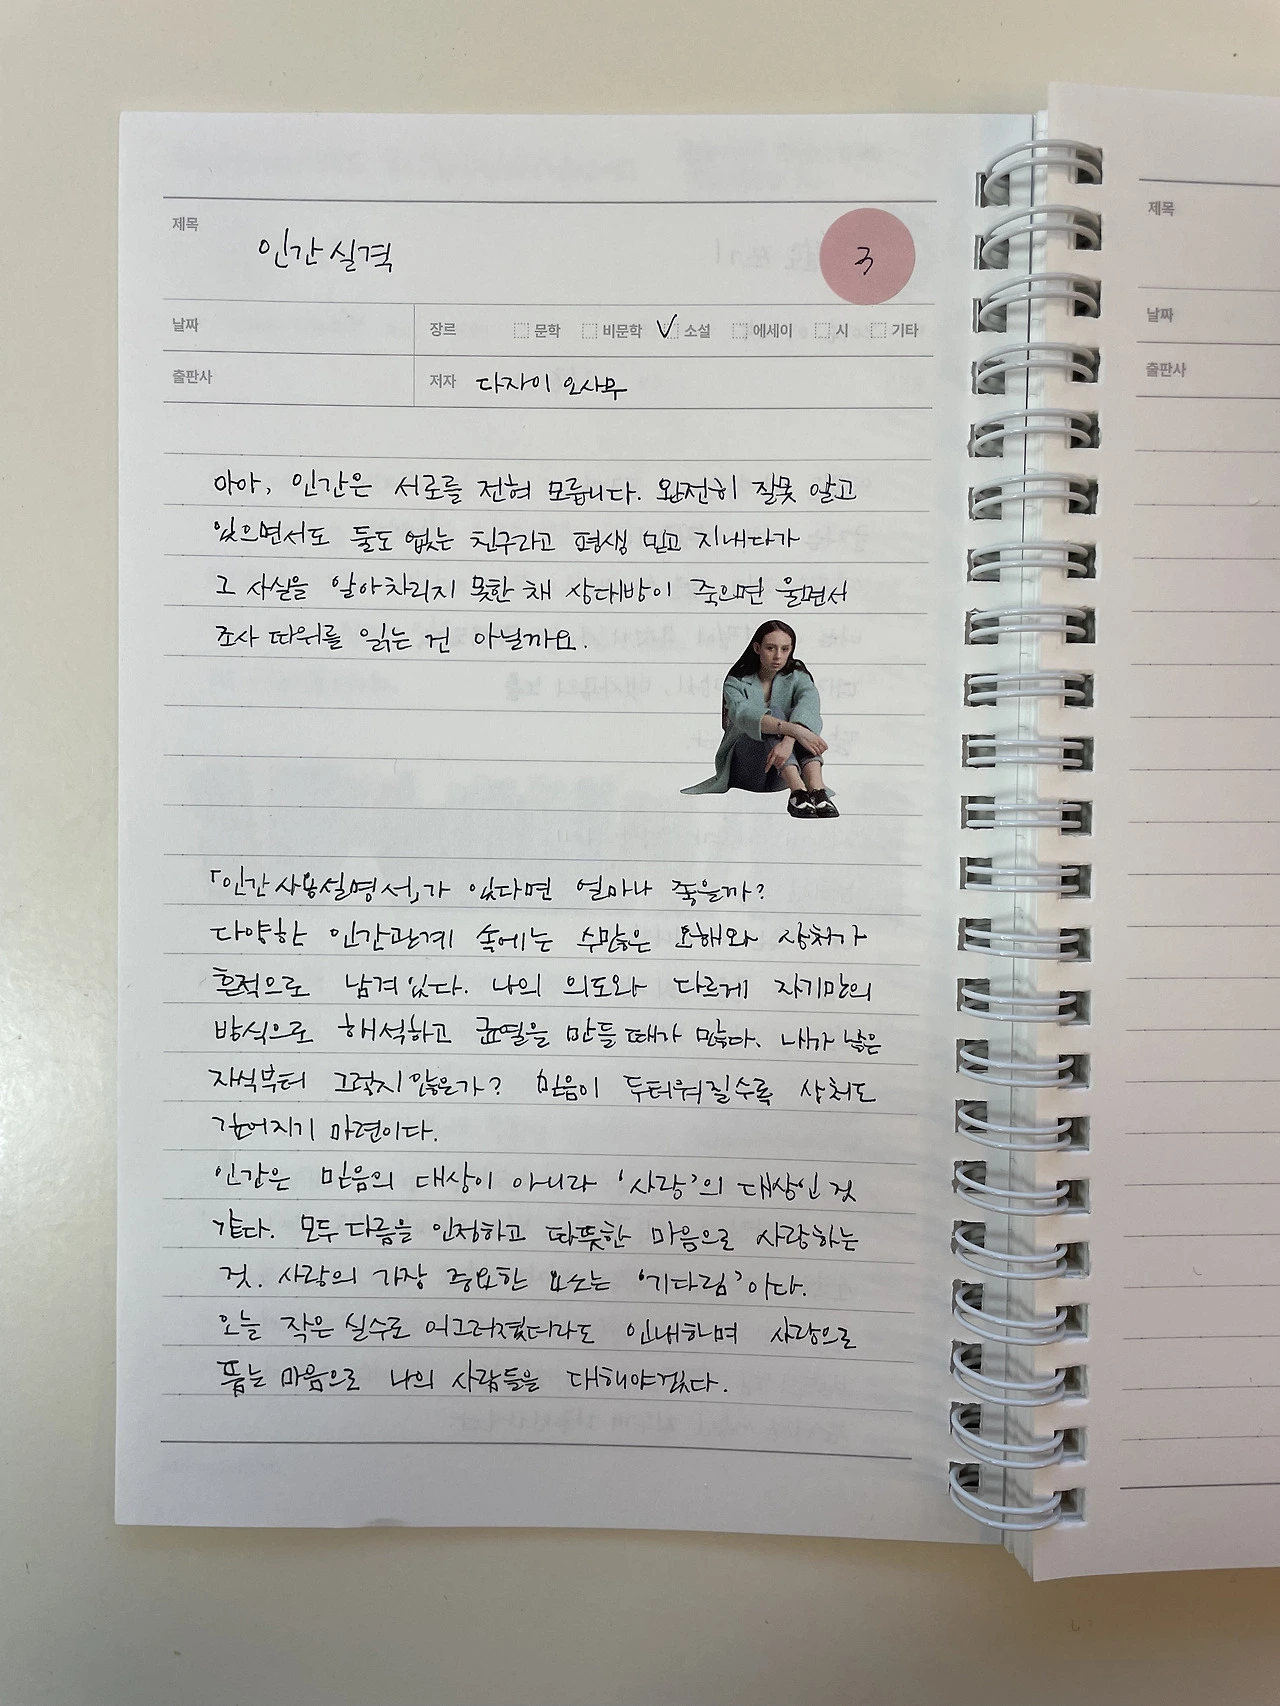 제목
인간실격
3
날짜
장르 문학 비문학 소설 에세이 시 기타
출판사
저자 다자이 오사무
아아, 인간은 서로를 전혀 모릅니다. 완전히 잘못 알고
있으면서도 둘도 없는 친구라고 평생 믿고 지내다가
그 사실을 알아차리지 못한 채 상대방이 죽으면 울면서
조사 따위를 읽는 건 아닐까요.
「인간사용설명서」가 있다면 얼마나 좋을까?
다양한 인간관계 속에는 수많은 오해와 상처가
흔적으로 남겨있다. 나의 의도와 다르게 자기만의
방식으로 해석하고 균열을 만들 때가 많다. 내가 낳은
자식부터 그렇지 않은가? 믿음이 두터워질수록 상처도
깊어지기 마련이다.
인간은 믿음의 대상이 아니라 '사랑'의 대상인 것
같다. 모두 다름을 인정하고 따뜻한 마음으로 사랑하는
것. 사랑의 가장 중요한 요소는 '기다림'이다.
오늘 작은 실수로 어그러졌더라도 인내하며 사랑으로
품는 마음으로 나의 사람들을 대해야겠다.
제목
날짜
출판사